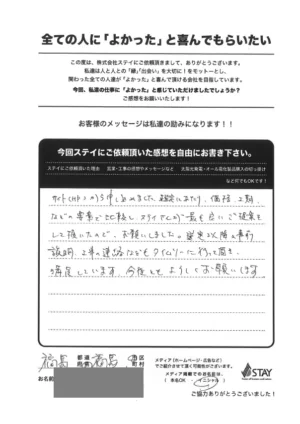 全ての人に「よかった」と喜んでもらいたい
この度は、株式会社ステイにご依頼頂きまして、ありがとうございます。
私達は人と人との「絆」「出会い」を大切に！をモットーとし、
関わった全ての人達が「よかった」と喜んで頂ける会社を目指しています。
今回、私達の仕事に「よかった」と感じていただけましたでしょうか？
ご感想をお願いいたします！
お客様のメッセージは私達の励みになります！！
今回ステイにご依頼頂いた感想を自由にお書き下さい。
ステイにご依頼頂いた理由
営業・工事の感想やメッセージなど
太陽光発電・オール電化製品購入の切っ掛け
など何でもOKです！
から申し込みました。
などの要素で比較し、
して頂いたので、お願いしました。
説明、工事の連絡などもタイムリーに行って頂き、
満足しています。今後ともよろしくお願いします
福島 都道府県 福島 市区町村
お名前
メディア（ホームページ・広告など）
でご紹介させて頂く可能性がございます。
メディア掲載でのお名前は、
（ 本名OK ・ イニシャル ）
STAY
ご協力ありがとうございました！